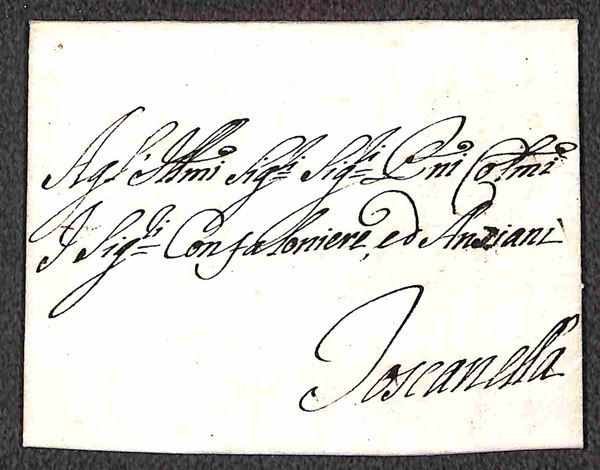 Agl' Illmi Sigri Sigri Pni Colmi
I Sigri Confaloniere, ed Anziani
Toscanella